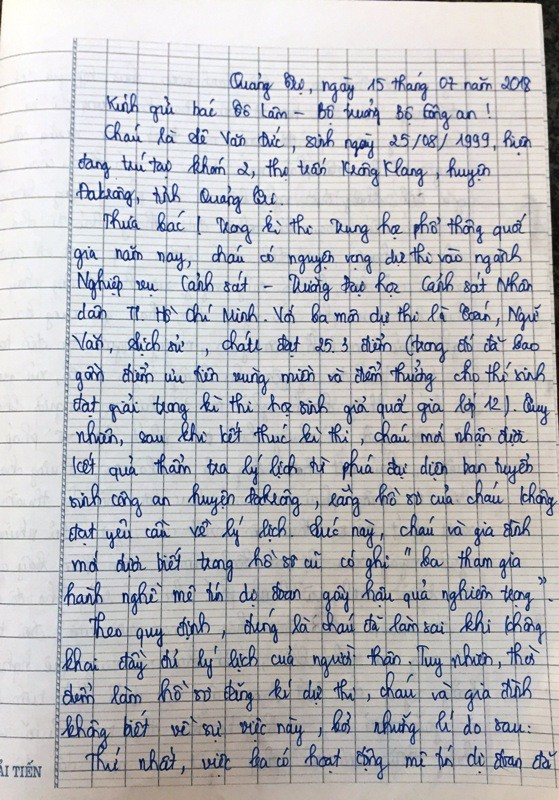 Quảng Trị, ngày 15 tháng 07 năm 2018
Kính gửi bác Tô Lâm - Bộ trưởng Bộ Công an !
Cháu là Lê Văn Đức, sinh ngày 25/08/1999, hiện
đang trú tại khóm 2, thị trấn Krông Klang, huyện
Đakrông, tỉnh Quảng Trị.
Thưa bác ! Trong kì thi Trung học phổ thông quốc
gia năm nay, cháu có nguyện vọng dự thi vào ngành
Nghiệp vụ Cảnh sát - Trường Đại học Cảnh sát Nhân
dân TP. Hồ Chí Minh. Với ba môn dự thi là Toán, Ngữ
Văn, Lịch sử, cháu đạt 25.3 điểm (trong đó đã bao
gồm điểm ưu tiên vùng miền và điểm thưởng cho thí sinh
đạt giải trong kì thi học sinh giỏi quốc gia lớp 12). Tuy
nhiên, sau khi kết thúc kì thi, cháu mới nhận được
kết quả thẩm tra lý lịch từ phía đại diện ban tuyển
sinh công an huyện Đakrông, rằng hồ sơ của cháu không
đạt yêu cầu về lý lịch. Lúc này, cháu và gia đình
mới được biết trong hồ sơ cũ có ghi "ba tham gia
hành nghề mê tín dị đoan gây hậu quả nghiêm trọng".
Theo quy định, đúng là cháu đã làm sai khi không
khai đầy đủ lý lịch của người thân. Tuy nhiên, thời
điểm làm hồ sơ đăng kí dự thi, cháu và gia đình
không biết về sự việc này, bởi những lí do sau:
Thứ nhất, việc ba có hoạt động mê tín dị đoan đã
ẢI TIẾN